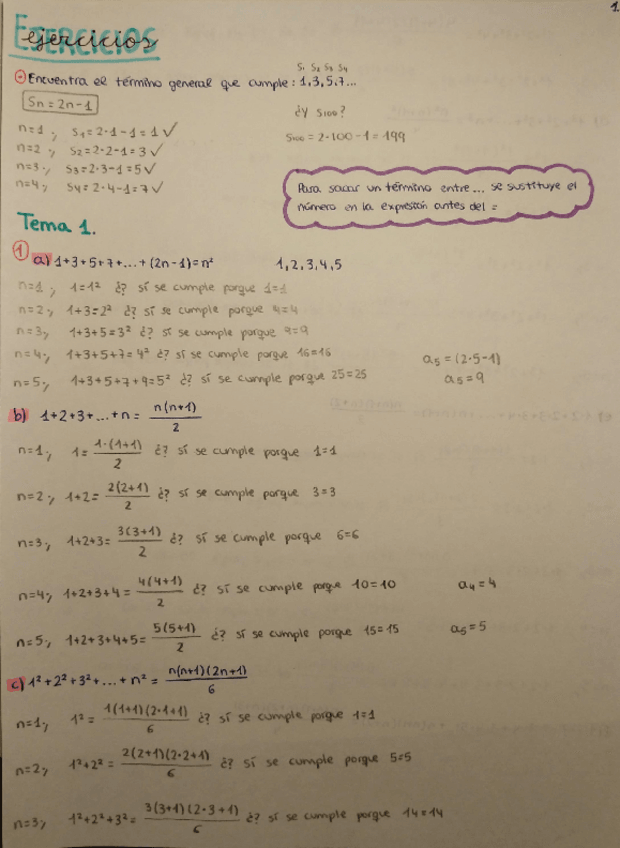 1.
EJERCICIOS
ejercicios
S₁ S₂ S₃ S₄
Encuentra el término general que cumple: 1,3,5,7...
Sn = 2n-1
¿Y S₁₀₀?
n=1; S₁=2·1-1=1 ✓
S₁₀₀ = 2·100-1=199
n=2; S₂=2·2-1=3 ✓
n=3; S₃=2·3-1=5 ✓
n=4; S₄=2·4-1=7 ✓
Para sacar un término entre ... se sustituye el
número en la expresión antes del =
Tema 1.
① a) 1+3+5+7+...+(2n-1)=n² 1,2,3,4,5
n=1; 1=1² ¿? sí se cumple porque 1=1
n=2; 1+3=2² ¿? sí se cumple porque 4=4
n=3; 1+3+5=3² ¿? sí se cumple porque 9=9
n=4; 1+3+5+7=4² ¿? sí se cumple porque 16=16 a₅=(2·5-1)
n=5; 1+3+5+7+9=5² ¿? sí se cumple porque 25=25 a₅=9
b) 1+2+3+...+n= n(n+1)/2
n=1; 1= 1·(1+1)/2 ¿? sí se cumple porque 1=1
n=2; 1+2= 2(2+1)/2 ¿? sí se cumple porque 3=3
n=3; 1+2+3= 3(3+1)/2 ¿? sí se cumple porque 6=6
n=4; 1+2+3+4= 4(4+1)/2 ¿? sí se cumple porque 10=10 a₄=4
n=5; 1+2+3+4+5= 5(5+1)/2 ¿? sí se cumple porque 15=15 a₅=5
c) 1²+2²+3²+...+n² = n(n+1)(2n+1)/6
n=1; 1² = 1(1+1)(2·1+1)/6 ¿? sí se cumple porque 1=1
n=2; 1²+2² = 2(2+1)(2·2+1)/6 ¿? sí se cumple porque 5=5
n=3; 1²+2²+3²= 3(3+1)(2·3+1)/6 ¿? sí se cumple porque 14=14